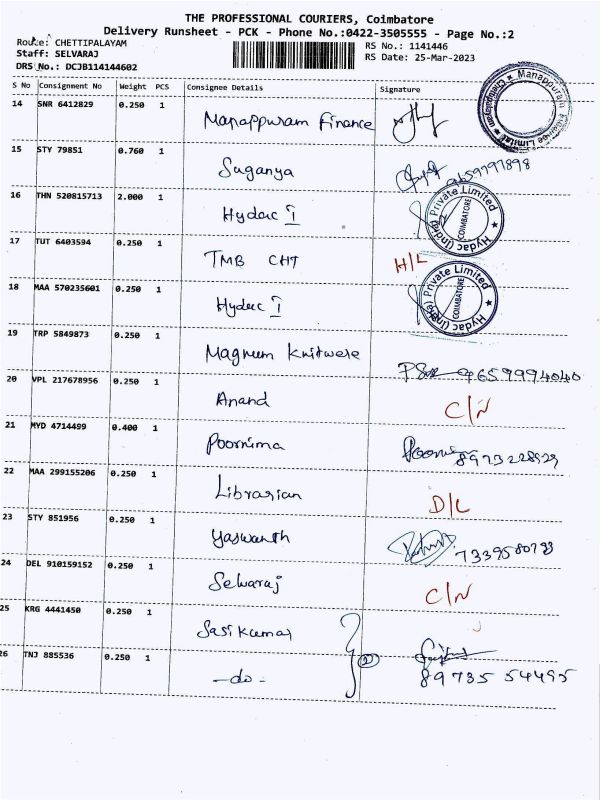 THE PROFESSIONAL COURIERS, Coimbatore
Delivery Runsheet - PCK - Phone No.:0422-3505555 - Page No.:2
Route: CHETTIPALAYAM
Staff: SELVARAJ
DRS No.: DCJB114144602
RS No.: 1141446
RS Date: 25-Mar-2023
S No Consignment No Weight PCS Consignee Details Signature
14 SNR 6412829 0.250 1 Manappuram Finance
15 STY 79851 0.760 1 Suganya
16 THN 520815713 2.000 1 Hydac I
Hydac (India) Private Limited COIMBATORE
17 TUT 6403594 0.250 1 TMB CHT H/L
18 MAA 570235601 0.250 1 Hydac I
Hydac (India) Private Limited COIMBATORE
19 TRP 5849873 0.250 1 Magnum Knitwere 9659994040
20 VPL 217678956 0.250 1 Anand C/N
21 MYD 4714499 0.400 1 Poornima
22 MAA 299155206 0.250 1 Librarian D/L
23 STY 851956 0.250 1 Yaswanth
24 DEL 910159152 0.250 1 Selvaraj C/N
25 KRG 4441450 0.250 1 Sasikumar
26 TNJ 885536 0.250 1 -do- 2 89735 54495